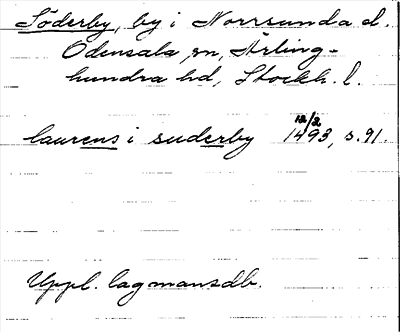 Söderby, by i Norrsunda d.
Odensala sn, Ärling-
hundra hd, Stockh. l.
laurens i suderby 12/2 1493, s. 91.
Uppl. lagmansdb.